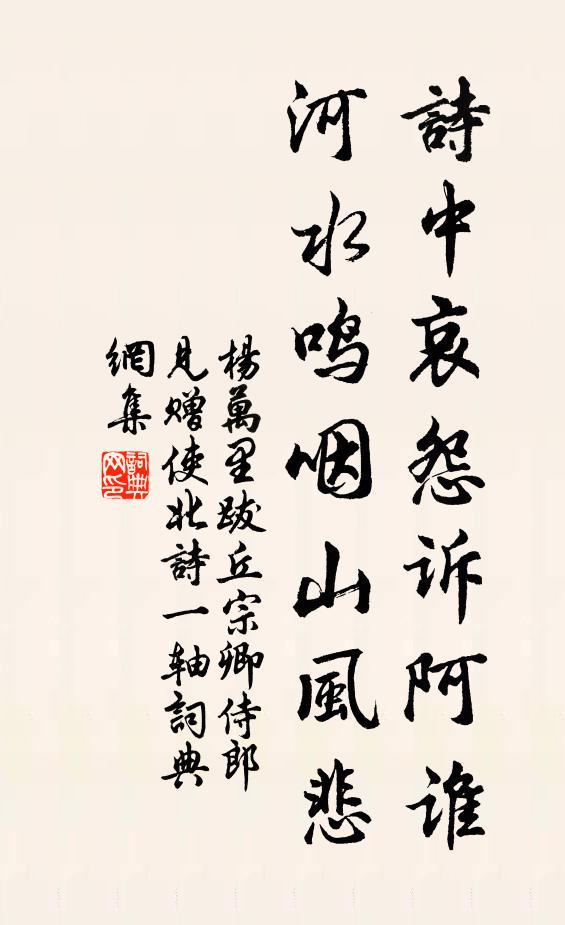 詩中哀怨诉阿谁
河水鸣咽山風悲
楊萬里跋丘宗卿侍郎
見赠使北詩一轴詞典
網集
詞典
网印